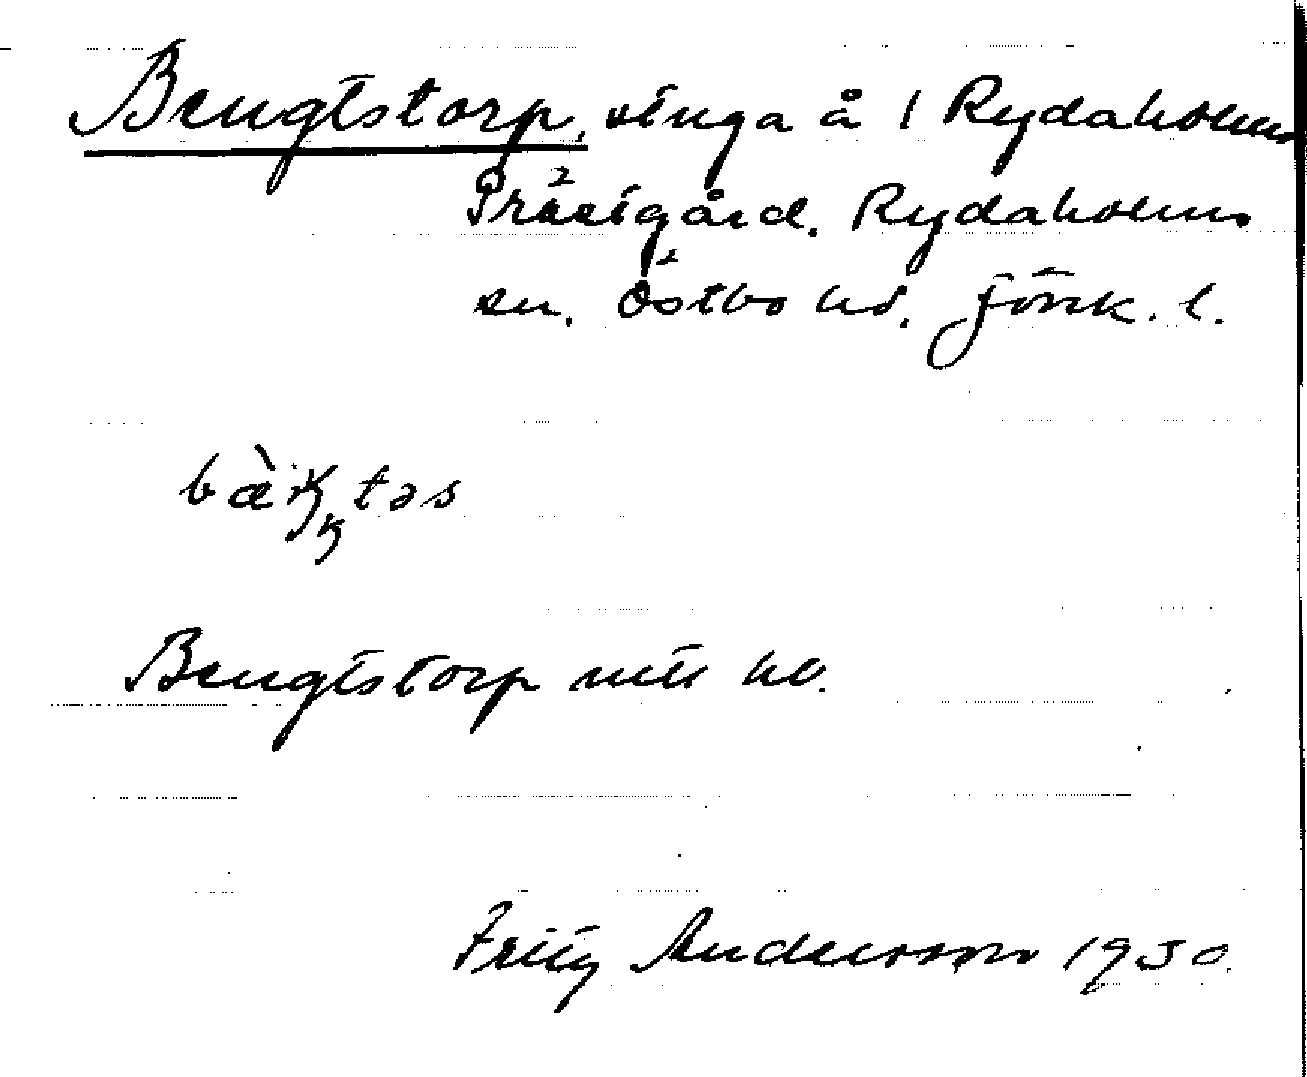 Bengtstorp, stuga å 1 Rydaholms
Prästgård. Rydaholms
sn. Östbo hd. Jönk. l.
Bengtstorp
Fritz Andersson 1930.